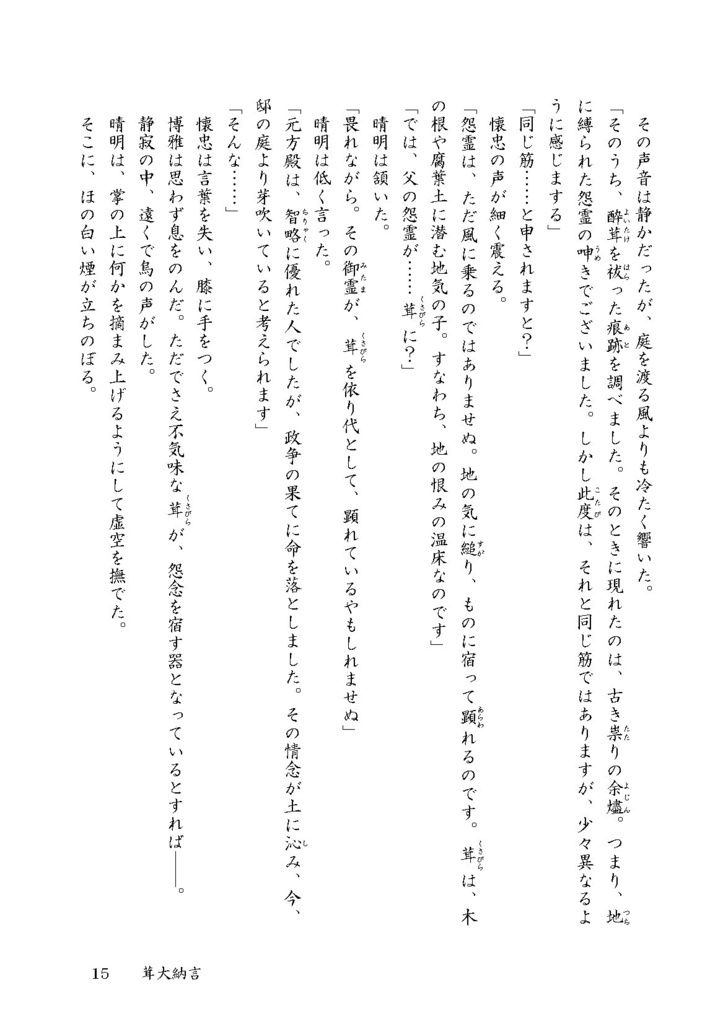 その声音は静かだったが、庭を渡る風よりも冷たく響いた。
「そのうち、酔茸を祓った痕跡を調べました。そのときに現れたのは、古き祟りの余燼。つまり、地
に縛られた怨霊の呻きでございました。しかし此度は、それと同じ筋ではありますが、少々異なるよ
うに感じまする」
「同じ筋……と申されますと？」
懐忠の声が細く震える。
「怨霊は、ただ風に乗るのではありませぬ。地の気に縋り、ものに宿って顕れるのです。茸は、木
の根や腐葉土に潜む地気の子。すなわち、地の恨みの温床なのです」
「では、父の怨霊が……茸に？」
晴明は頷いた。
「畏れながら。その御霊が、茸を依り代として、顕れているやもしれませぬ」
晴明は低く言った。
「元方殿は、智略に優れた人でしたが、政争の果てに命を落としました。その情念が土に沁み、今、
邸の庭より芽吹いていると考えられます」
「そんな……」
懐忠は言葉を失い、膝に手をつく。
博雅は思わず息をのんだ。ただでさえ不気味な茸が、怨念を宿す器となっているとすれば――。
静寂の中、遠くで鳥の声がした。
晴明は、掌の上に何かを摘まみ上げるようにして虚空を撫でた。
そこに、ほの白い煙が立ちのぼる。
15　茸大納言